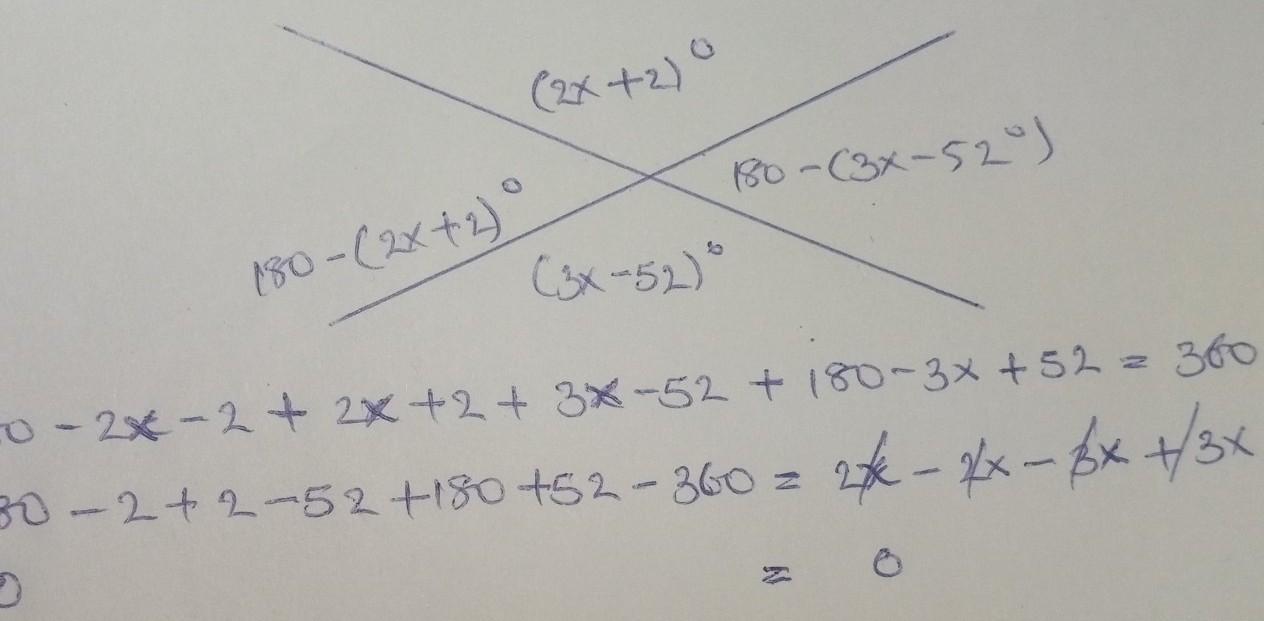 (2x+2)°
180-(3x-52°)
180-(2x+2)°
(3x-52)°
0-2x-2+2x+2+3x-52+180-3x+52=360
80-2+2-52+180+52-360=2x-2x-3x+3x
0 = 0